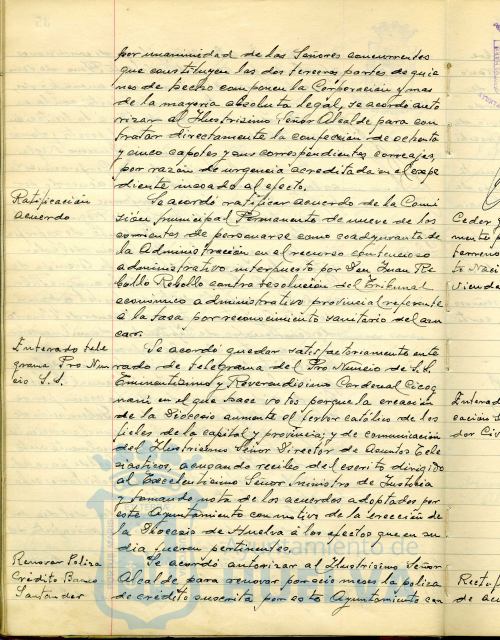 por unanimidad de los Señores concurrentes
que constituyen las dos terceras partes de quie
nes de hecho componen la Corporación y mas
de la mayoria absoluta legal, se acordo auto
rizar al Ilustrisimo Señor Alcalde para con
tratar directamente la confección de ochenta
y cinco capotes y sus correspondientes correajes,
por razón de urgencia acreditada en el expe
diente incoado al efecto.
Ratificación
acuerdo
Se acordó ratificar acuerdo de la Comi
sión municipal Permanente de nueve de los
corrientes de personarse como coadyuvante de
la Administración en el recurso contencioso
administrativo interpuesto por Don Juan Re
bollo Rebollo contra resolución del Tribunal
economico administrativo provincial referente
á la tasa por reconocimiento sanitario del azu
car.
Enterado tele
grama Pro Nun
cio S.S.
Se acordó quedar satisfactoriamente ente
rado de telegrama del Pro Nuncio de S.S.
Eminentisimo y Reverendisimo Cardenal Cicog
nani en el que hace votos porque la creación
de la Diocesis aumente el fervor católico de los
fieles de la capital y provincia; y de comunicación
del Ilustrisimo Señor Director de Asuntos Ecle
siasticos, acusando recibo del escrito dirigido
al Excelentisimo Señor Ministro de Justicia
y tomando nota de los acuerdos adoptados por
este Ayuntamiento con motivo de la creación de
la Diocesis de Huelva á los efectos que en su
dia fueren pertinentes.
Renovar Poliza
Crédito Banco
Santander
Se acordó autorizar al Ilustrisimo Señor
Alcalde para renovar por seis meses la poliza
de crédito suscrita por este Ayuntamiento con
Ceder
mento
terreno
to Naci
vienda
Enterado
cación
dor Civ
de acu
Ayuntamiento de